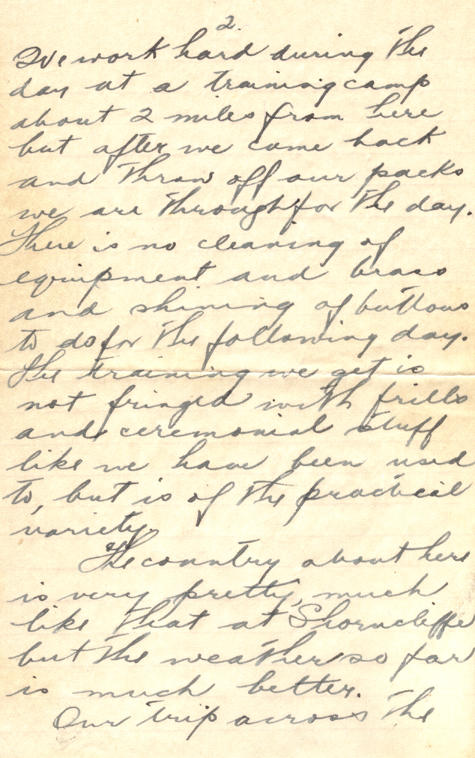 2.
We work hard during the
day at a training camp
about 2 miles from here
but after we come back
and throw off our packs
we are through for the day.
There is no cleaning of
equipment and brass
and shining of buttons
to do for the following day.
The training we get is
not fringed with frills
and ceremonial stuff
like we have been used
to, but is of the practical
variety.
The country about here
is very pretty, much
like that at Shorncliffe
but the weather so far
is much better.
Our trip across the